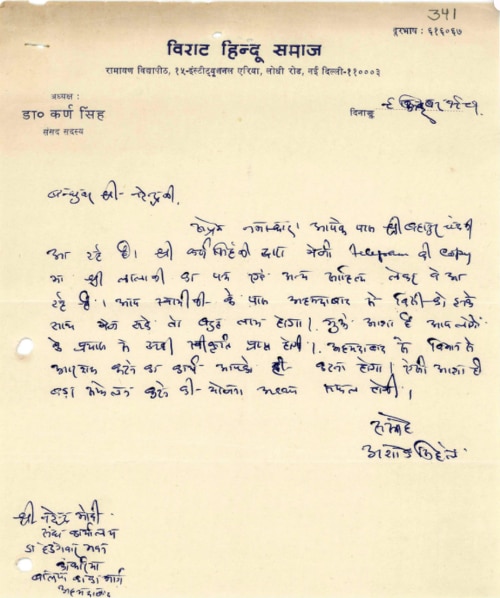 341
दूरभाष : ६१६०६७
विराट हिन्दू समाज
रामायण विद्यापीठ, १५-इंस्टीट्यूशनल एरिया, लोधी रोड, नई दिल्ली-११०००३
अध्यक्ष :
डा० कर्ण सिंह
संसद सदस्य
दिनाङ्क
बन्धुवर श्री नरेन्द्र जी,
सप्रेम नमस्कार। आपके पास श्री बहादुर चंदजी
आ रहे हैं। श्री कर्ण सिंहजी द्वारा भेजी telegram की copy
श्री लालाजी का पत्र एवं अन्य साहित्य लेकर वे आ
रहे हैं। आप स्वामीजी के पास अहमदाबाद से किसी को इनके
साथ भेज सकें तो बहुत लाभ होगा। मुझे आशा है आप लोगों
के प्रयास से उनकी स्वीकृति प्राप्त होगी। अहमदाबाद के
करने का कार्य आपको ही करना होगा। ऐसी आशा है
बड़ा सम्मेलन करने की योजना अवश्य सफल होगी।
सस्नेह
अशोक सिंहल
श्री नरेन्द्र मोदी
संघ कार्यालय
डा हेडगेवार भवन
कांकरिया
बलिया काका मार्ग
अहमदाबाद